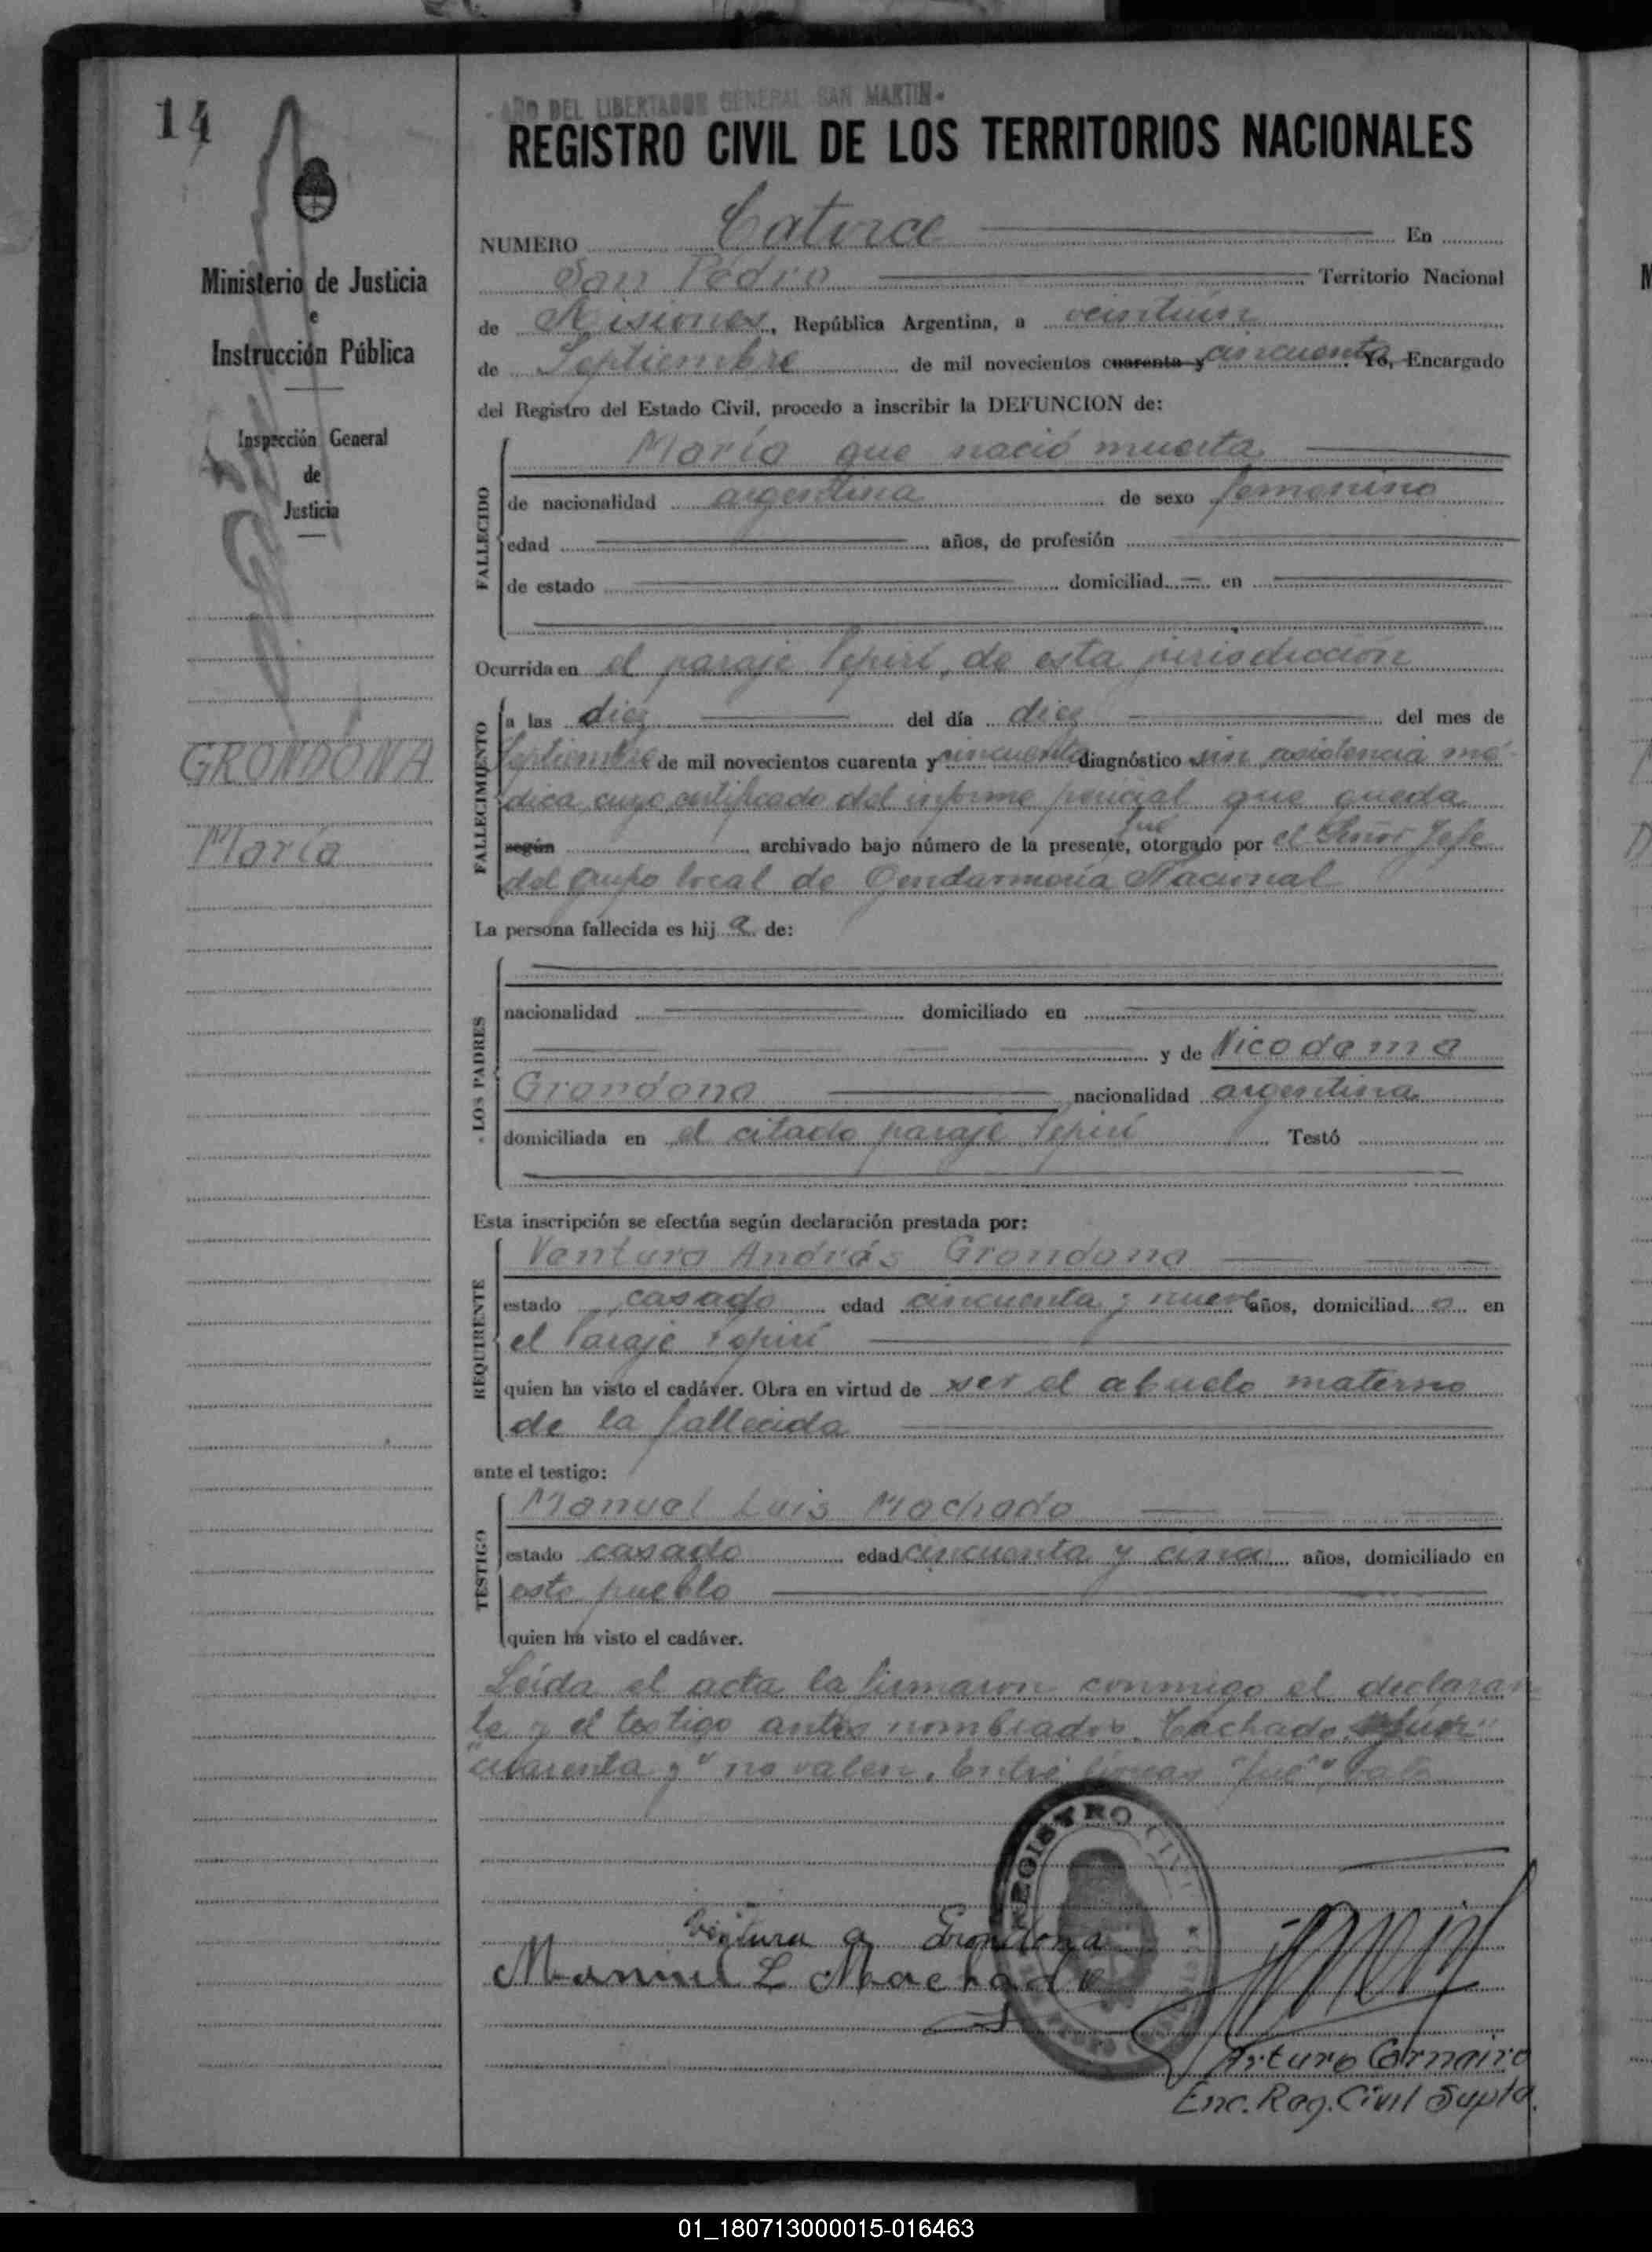 14
Ministerio de Justicia
e
Instrucción Pública
Inspección General
de
Justicia
GRONDONA
María
AÑO DEL LIBERTADOR GENERAL SAN MARTIN
REGISTRO CIVIL DE LOS TERRITORIOS NACIONALES
NUMERO Catorce En
San Pedro Territorio Nacional
de Misiones, República Argentina, a veintiún
de Septiembre de mil novecientos cuarenta y cincuenta Yo, Encargado
del Registro del Estado Civil, procedo a inscribir la DEFUNCION de:
FALLECIDO
María que nació muerta
de nacionalidad argentina de sexo femenino
edad años, de profesión
de estado domiciliad en
Ocurrida en el paraje Pepirí, de esta jurisdicción
FALLECIMIENTO
a las diez del día diez del mes de
Septiembre de mil novecientos cuarenta y cincuenta diagnóstico sin asistencia mé-
dica cuyo certificado del informe pericial que queda
fué
según archivado bajo número de la presente, otorgado por el Señor Jefe
del Grupo local de Gendarmería Nacional
La persona fallecida es hija de:
LOS PADRES
nacionalidad domiciliado en
y de Nicodema
Grondona nacionalidad argentina
domiciliada en el citado paraje Pepirí Testó
Esta inscripción se efectúa según declaración prestada por:
REQUIRENTE
Ventura Andrés Grondona
estado casado edad cincuenta y nueve años, domiciliado en
el Paraje Pepirí
quien ha visto el cadáver. Obra en virtud de ser el abuelo materno
de la fallecida
ante el testigo:
TESTIGO
Manuel Luis Machado
estado casado edad cincuenta y cinco años, domiciliado en
este pueblo
quien ha visto el cadáver.
Leída el acta la firmaron conmigo el declaran
te y el testigo antes nombrados. Tachado
"cuarenta y" no valen. Entre líneas "fué", vale
REGISTRO CIVIL
Ventura A Grondona
Manuel L Machado
Arturo Carneiro
Enc. Reg. Civil Supte.
01_180713000015-016463